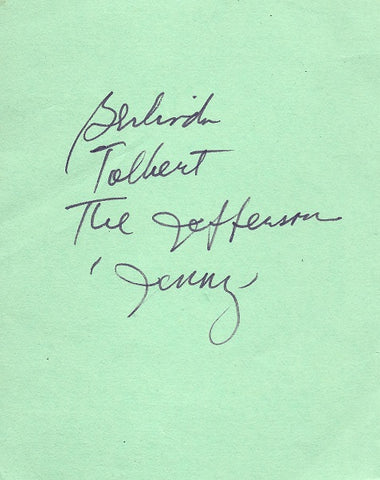 Berlinda
Tolbert
The Jefferson
'Jenny'